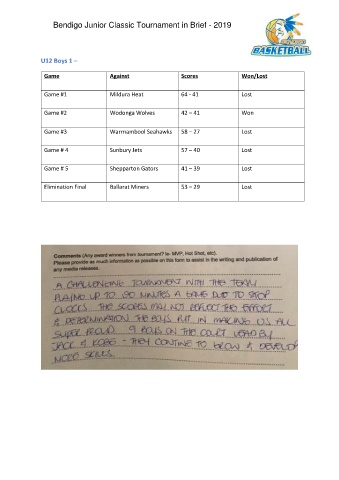 Bendigo Junior Classic Tournament in Brief - 2019
BASKETBALL
U12 Boys 1 –
Game Against Scores Won/Lost
Game #1 Mildura Heat 64 - 41 Lost
Game #2 Wodonga Wolves 42 – 41 Won
Game #3 Warrnambool Seahawks 58 – 27 Lost
Game # 4 Sunbury Jets 57 – 40 Lost
Game # 5 Shepparton Gators 41 – 39 Lost
Elimination Final Ballarat Miners 53 – 29 Lost
Comments (Any award winners from tournament? Ie- MVP, Hot Shot, etc).
Please provide as much information as possible on this form to assist in the writing and publication of
any media releases.
A CHALLENGING TOURNAMENT WITH THE TEAM
PLAYING UP TO 60 MINUTES A GAME DUE TO STOP
CLOCKS. THE SCORES MAY NOT REFLECT THE EFFORT
& DETERMINATION THE BOYS PUT IN MAKING US ALL
SUPER PROUD. 9 BOYS ON THE COURT LEAD BY
JACK & KOBE - THEY CONTINUE TO GROW & DEVELOP
MORE SKILLS.